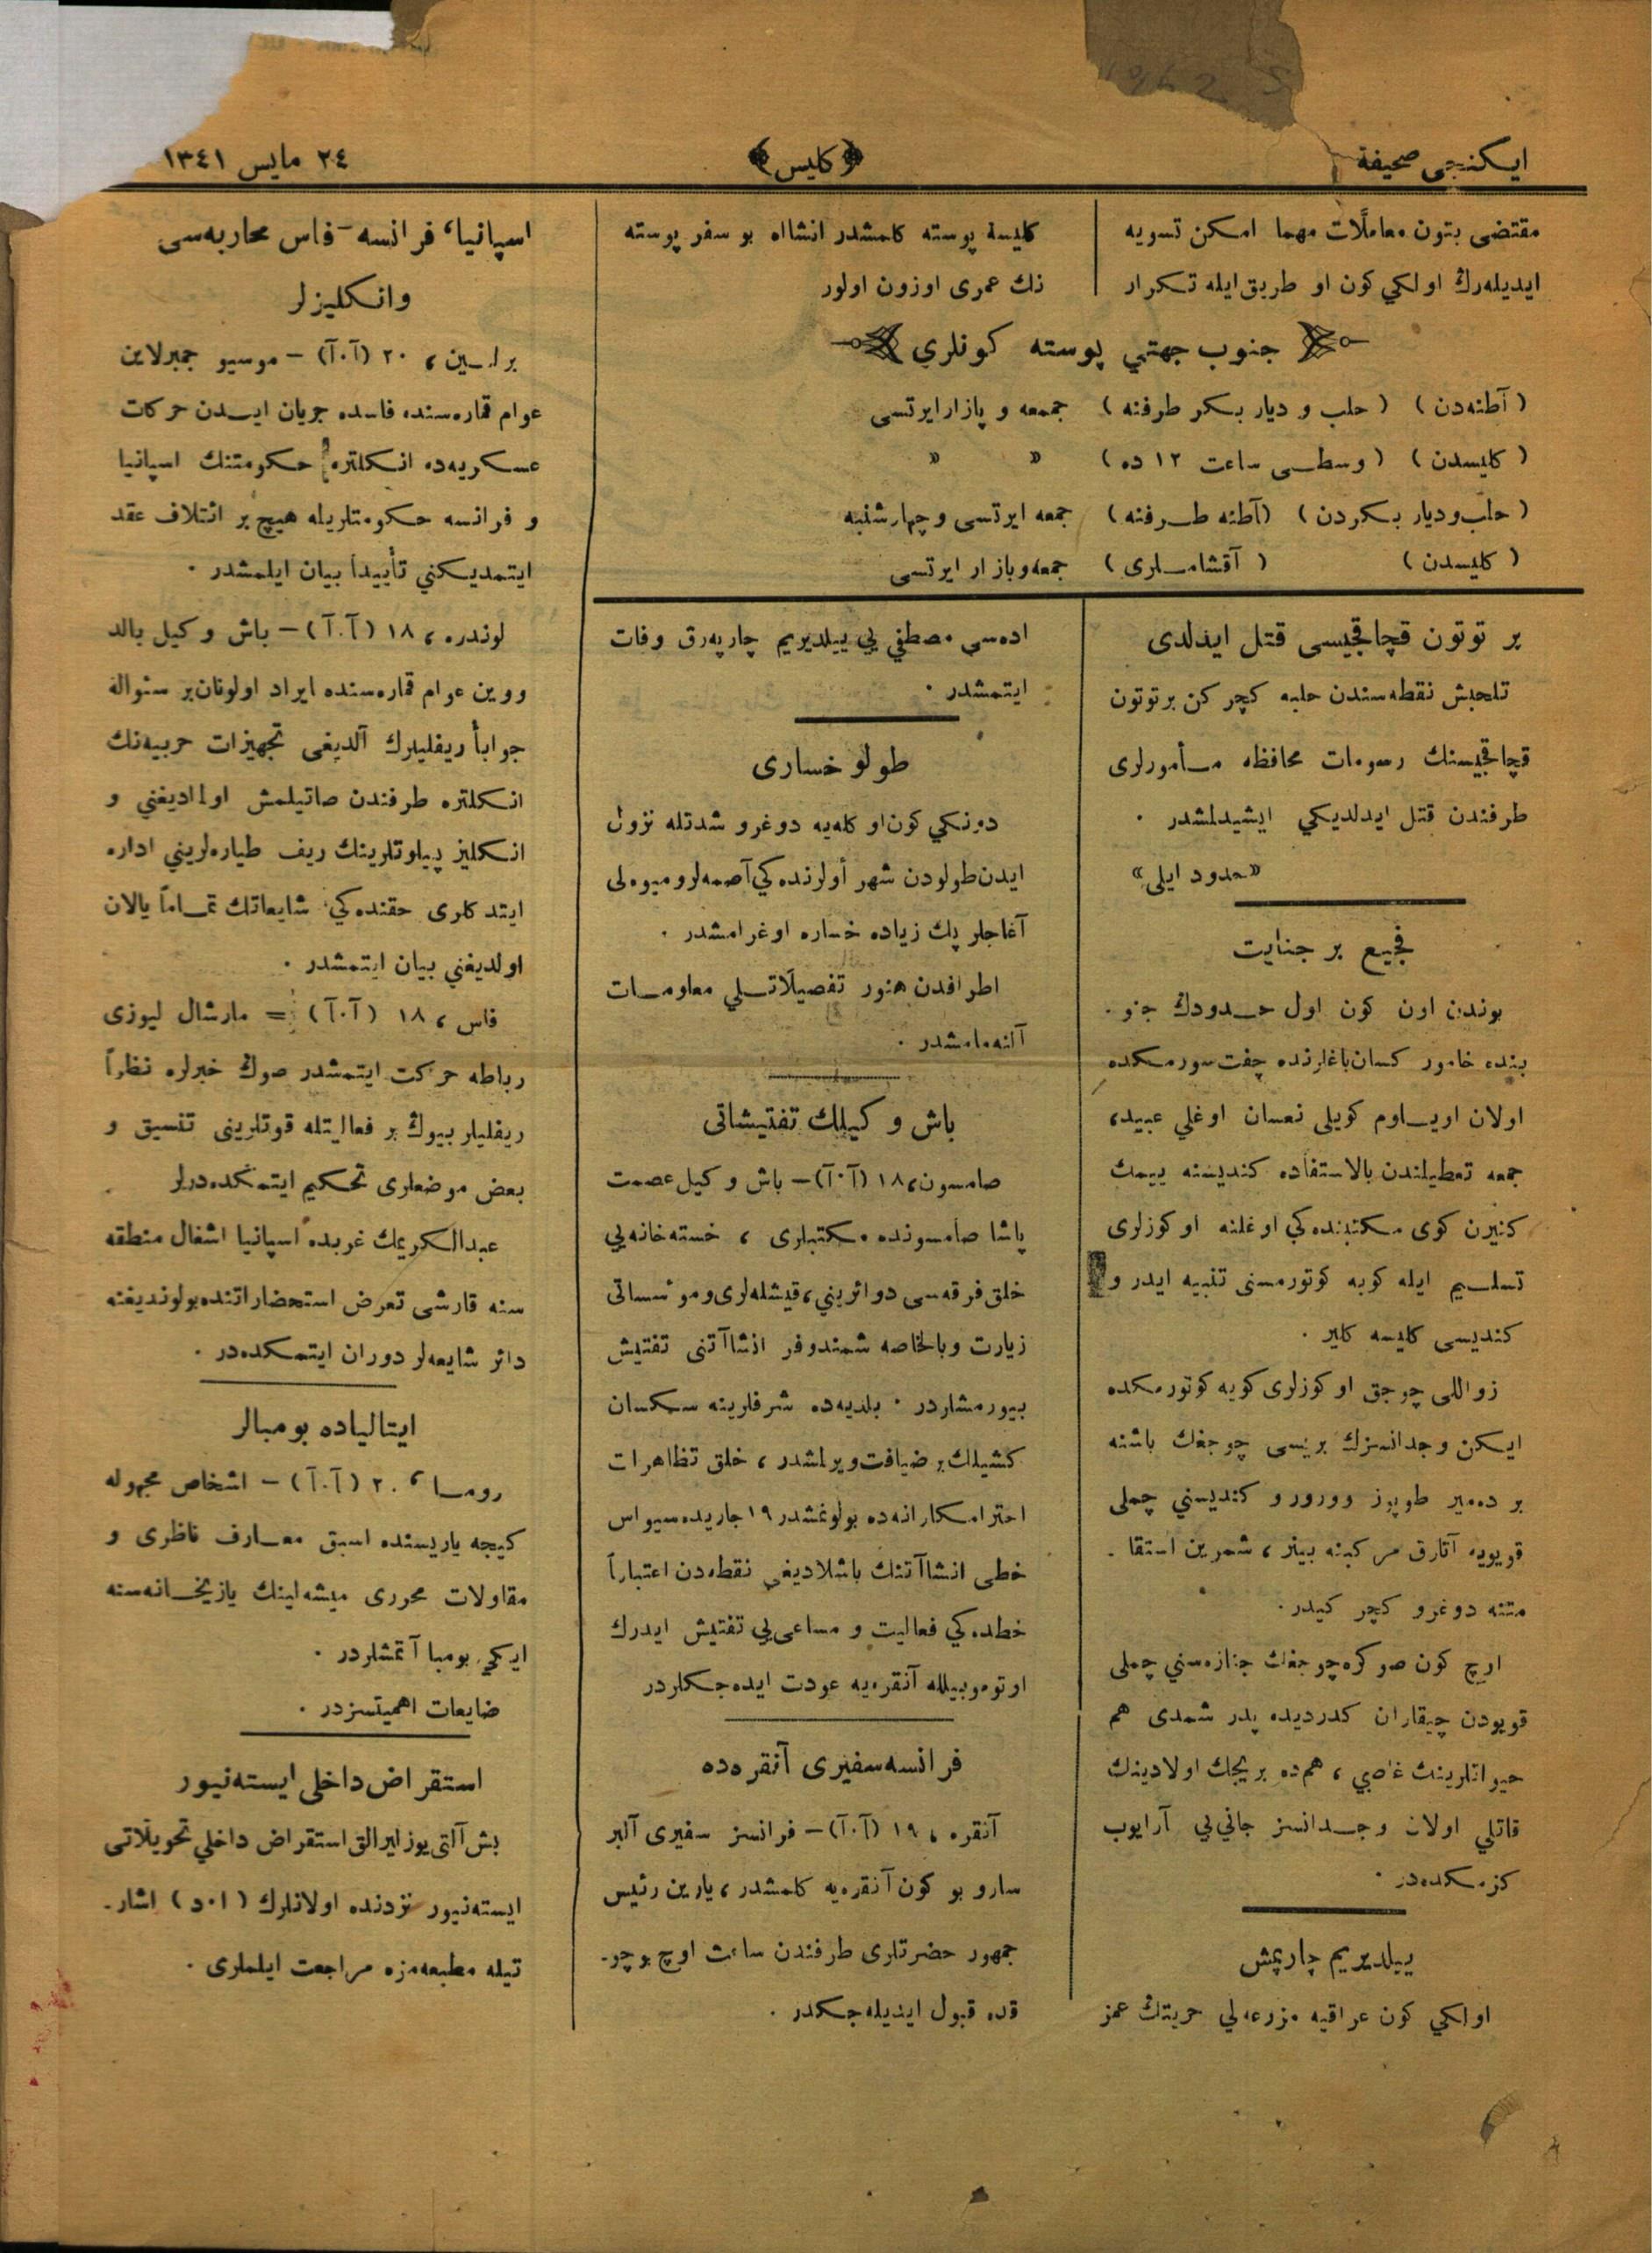 ایکنجی صحیفة
﴿کلیس﴾
٢٤ مایس ١٣٤١
مقتضی بتون معاملات مهما امکن تسویه
ایدیله‌رك اولکي کون او طریق ایله تکرار
کلیسه پوسته کلمشدر انشااه بو سفر پوسته
نك عمری اوزون اولور
جنوب جهتي پوسته کونلري
(آطنه‌دن) (حلب و دیار بکر طرفنه) جمعه و پازار ایرتسی
(کلیسدن) (وسطی ساعت ١٢ ده) » »
(حلب و دیار بکردن) (آطنه طرفنه) جمعه ایرتسی و چهارشنبه
(کلیسدن) (آقشاملری) جمعه و بازار ایرتسی
بر توتون قچاقجیسی قتل ایدلدی
تلحبش نقطه‌سندن حلبه کچر کن بر توتون
قچاقجیسنك رسومات محافظه مأمورلری
طرفندن قتل ایدلدیکي ایشیدلمشدر .
«حدود ایلی»
فجیع بر جنایت
بوندن اون کون اول حدودك جنو-
بنده خامور کسان باغلرنده چفت سورمکده
اولان اویلوم کویلی نعسان اوغلي عبید،
جمعه تعطیلندن بالاستفاده کندیسنه ییمك
کتیرن کوی مکتبنده کي اوغلنه اوکوزلری
تسلیم ایله کویه کوتورمسنی تنبیه ایدر و
کندیسی کلیسه کلیر .
زواللی چوجق اوکوزلری کویه کوتورمکده
ایکن وجدانسزك بریسی چوجغك باشنه
بر دمیر طوپوز وورور و کندیسني چملی
قویویه آتارق مرکبنه بینر، شمرین استقا-
متنه دوغرو کچر کیدر .
اوچ کون صوکره چوجغك جنازه‌سني چملی
قویودن چیقاران کدردیده پدر شمدی هم
حیوانلرینك غاصبي، هم‌ده بریجك اولادینك
قاتلي اولان وجدانسز جاني‌یي آرایوب
کزمکده‌در .
ییلدیریم چارپمش
اولکي کون عراقیه مزرعه‌لي حریتك عمز
اده‌سي مصطفي یي ییلدیریم چارپه‌رق وفات
ایتمشدر .
طولو خساری
دونکي کون اوکله‌یه دوغرو شدتله نزول
ایدن طولودن شهر أولرنده کي آصمه‌لر و میوه‌لی
آغاجلر پك زیاده خساره اوغرامشدر .
اطرافدن هنوز تفصیلاتلي معلومات
آلنه‌مامشدر .
باش وکیلك تفتیشاتی
صامسون، ١٨ (آ.آ)- باش وکیل عصمت
پاشا صامسونده مکتبلری، خسته‌خانه‌یي
خلق فرقه‌سی دوائریني، قیشله‌لری و مؤسساتی
زیارت و بالخاصه شمندوفر انشاآتنی تفتیش
بیورمشلردر . بلدیه‌ده شرفلرینه سکسان
کشیلك بر ضیافت ویرلمشدر، خلق تظاهرات
احترامکارانه‌ده بولونمشدر ١٩ جاریده سیواس
خطی انشاآتنك باشلادیغي نقطه‌دن اعتباراً
خطده کي فعالیت و مساعی‌یي تفتیش ایدرك
اوتوموبیلله آنقره‌یه عودت ایده‌جکلردر
فرانسه سفیری آنقره‌ده
آنقره، ١٩ (آ.آ)- فرانسز سفیری آلبر
سارو بو کون آنقره‌یه کلمشدر، یارین رئیس
جمهور حضرتلری طرفندن ساعت اوچ بوچو-
قده قبول ایدیله‌جکدر .
اسپانیا، فرانسه - فاس محاربه‌سی
وانکلیزلر
برلسین، ٢٠ (آ.آ)- موسیو جمبرلاین
عوام قماره‌سنده فاسده جریان ایدن حرکات
عسکریه‌ده انکلتره حکومتنك اسپانیا
و فرانسه حکومتلریله هیچ بر ائتلاف عقد
ایتمدیکني تأییداً بیان ایلمشدر .
لوندره، ١٨ (آ.آ)- باش وکیل بالد
ووین عوام قماره‌سنده ایراد اولونان بر سئواله
جواباً ریفلیلرك آلدیغی تجهیزات حربیه‌نك
انکلتره طرفندن صاتیلمش اولمادیغني و
انکلیز پیلوتلرینك ریف طیاره‌لریني اداره
ایتدکلری حقنده کي شایعاتك تماماً یالان
اولدیغني بیان ایتمشدر .
فاس، ١٨ (آ.آ) = مارشال لیوزی
رباطه حرکت ایتمشدر صوك خبرلره نظراً
ریفلیلر بیوك بر فعالیتله قوتلرینی تنسیق و
بعض موضعلری تحکیم ایتمکده‌درلر
عبدالکریمك غربده اسپانیا اشغال منطقه
سنه قارشی تعرض استحضاراتنده بولوندیغنه
دائر شایعه‌لر دوران ایتمکده‌در .
ایتالیاده بومبالر
روما، ٢٠ (آ.آ)- اشخاص مجهوله
کیجه یاریسنده اسبق معارف ناظری و
مقاولات محرری میشه‌لینك یازیخانه‌سنه
ایکي بومبا آتمشلردر .
ضایعات اهمیتسزدر .
استقراض داخلی ایسته‌نیور
بش آلتی یوز لیرالق استقراض داخلي تحویلاتی
ایسته‌نیور نزدنده اولانلرك (ا.د) اشار-
تیله مطبعه‌مزه مراجعت ایلملری .